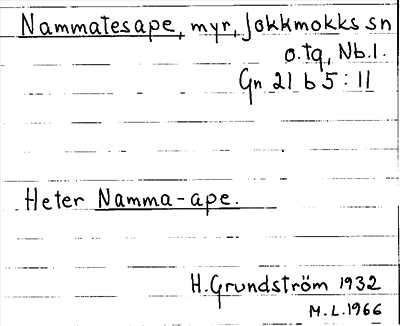 Nammatesape, myr, Jokkmokks sn
o. tg, Nb.l.
Gn 21 b 5 : 11
Heter Namma-ape.
H. Grundström 1932
M.L. 1966